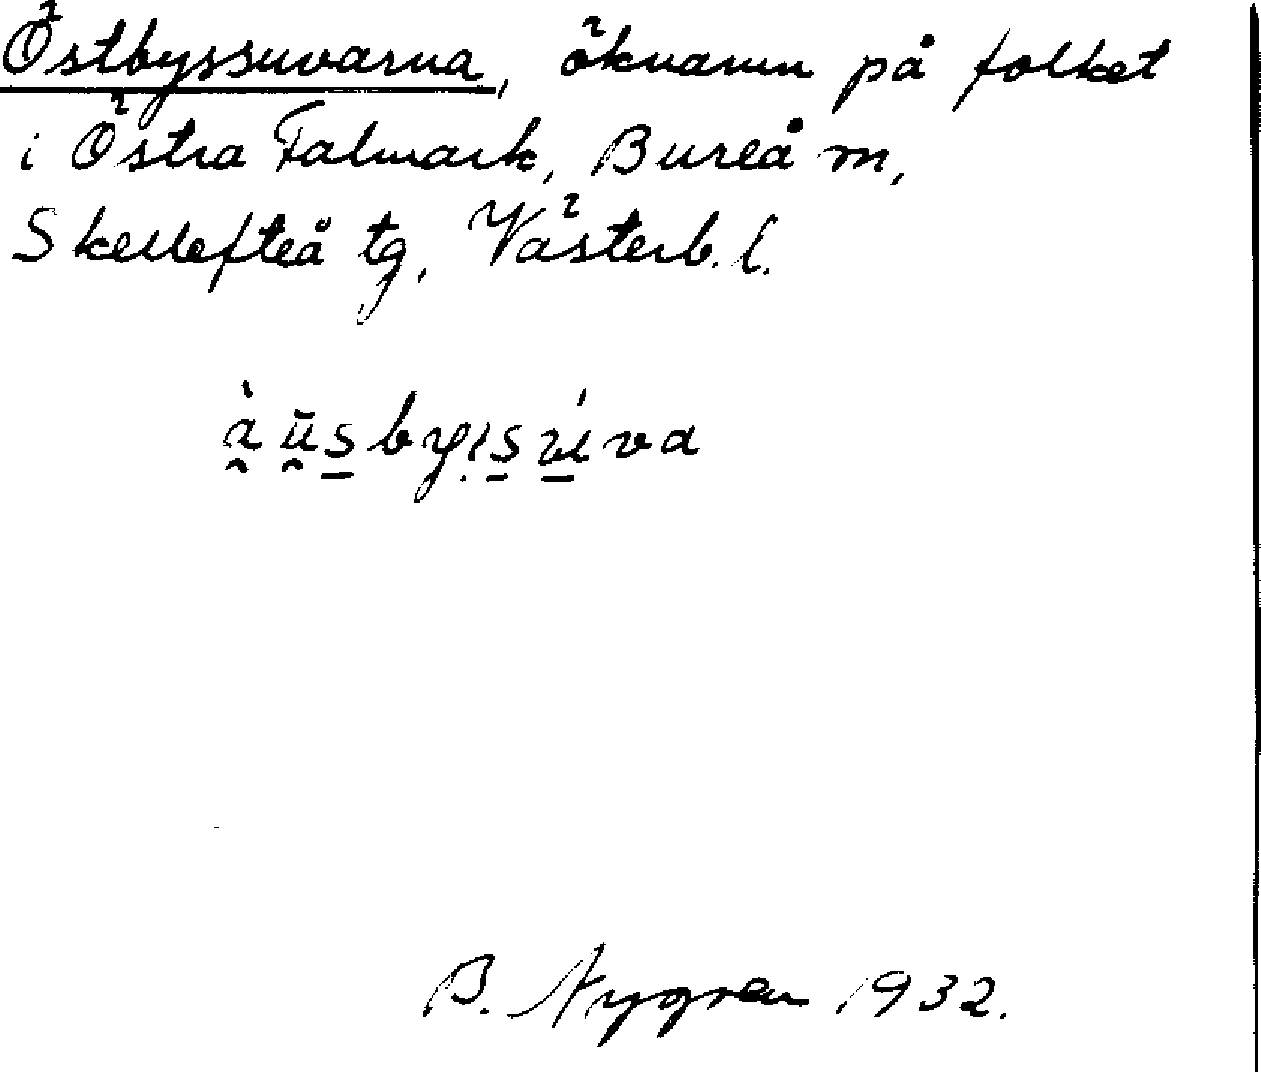 Östbyssuvarna, öknamn på folket
i Östra Falmark, Bureå m,
Skellefteå tg, Västerb. l.
B. Nygren 1932.